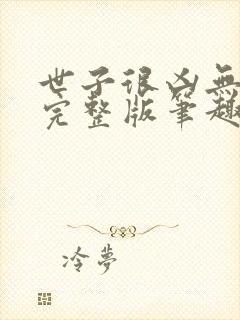 世子很凶無
完整版筆趣
冷夢